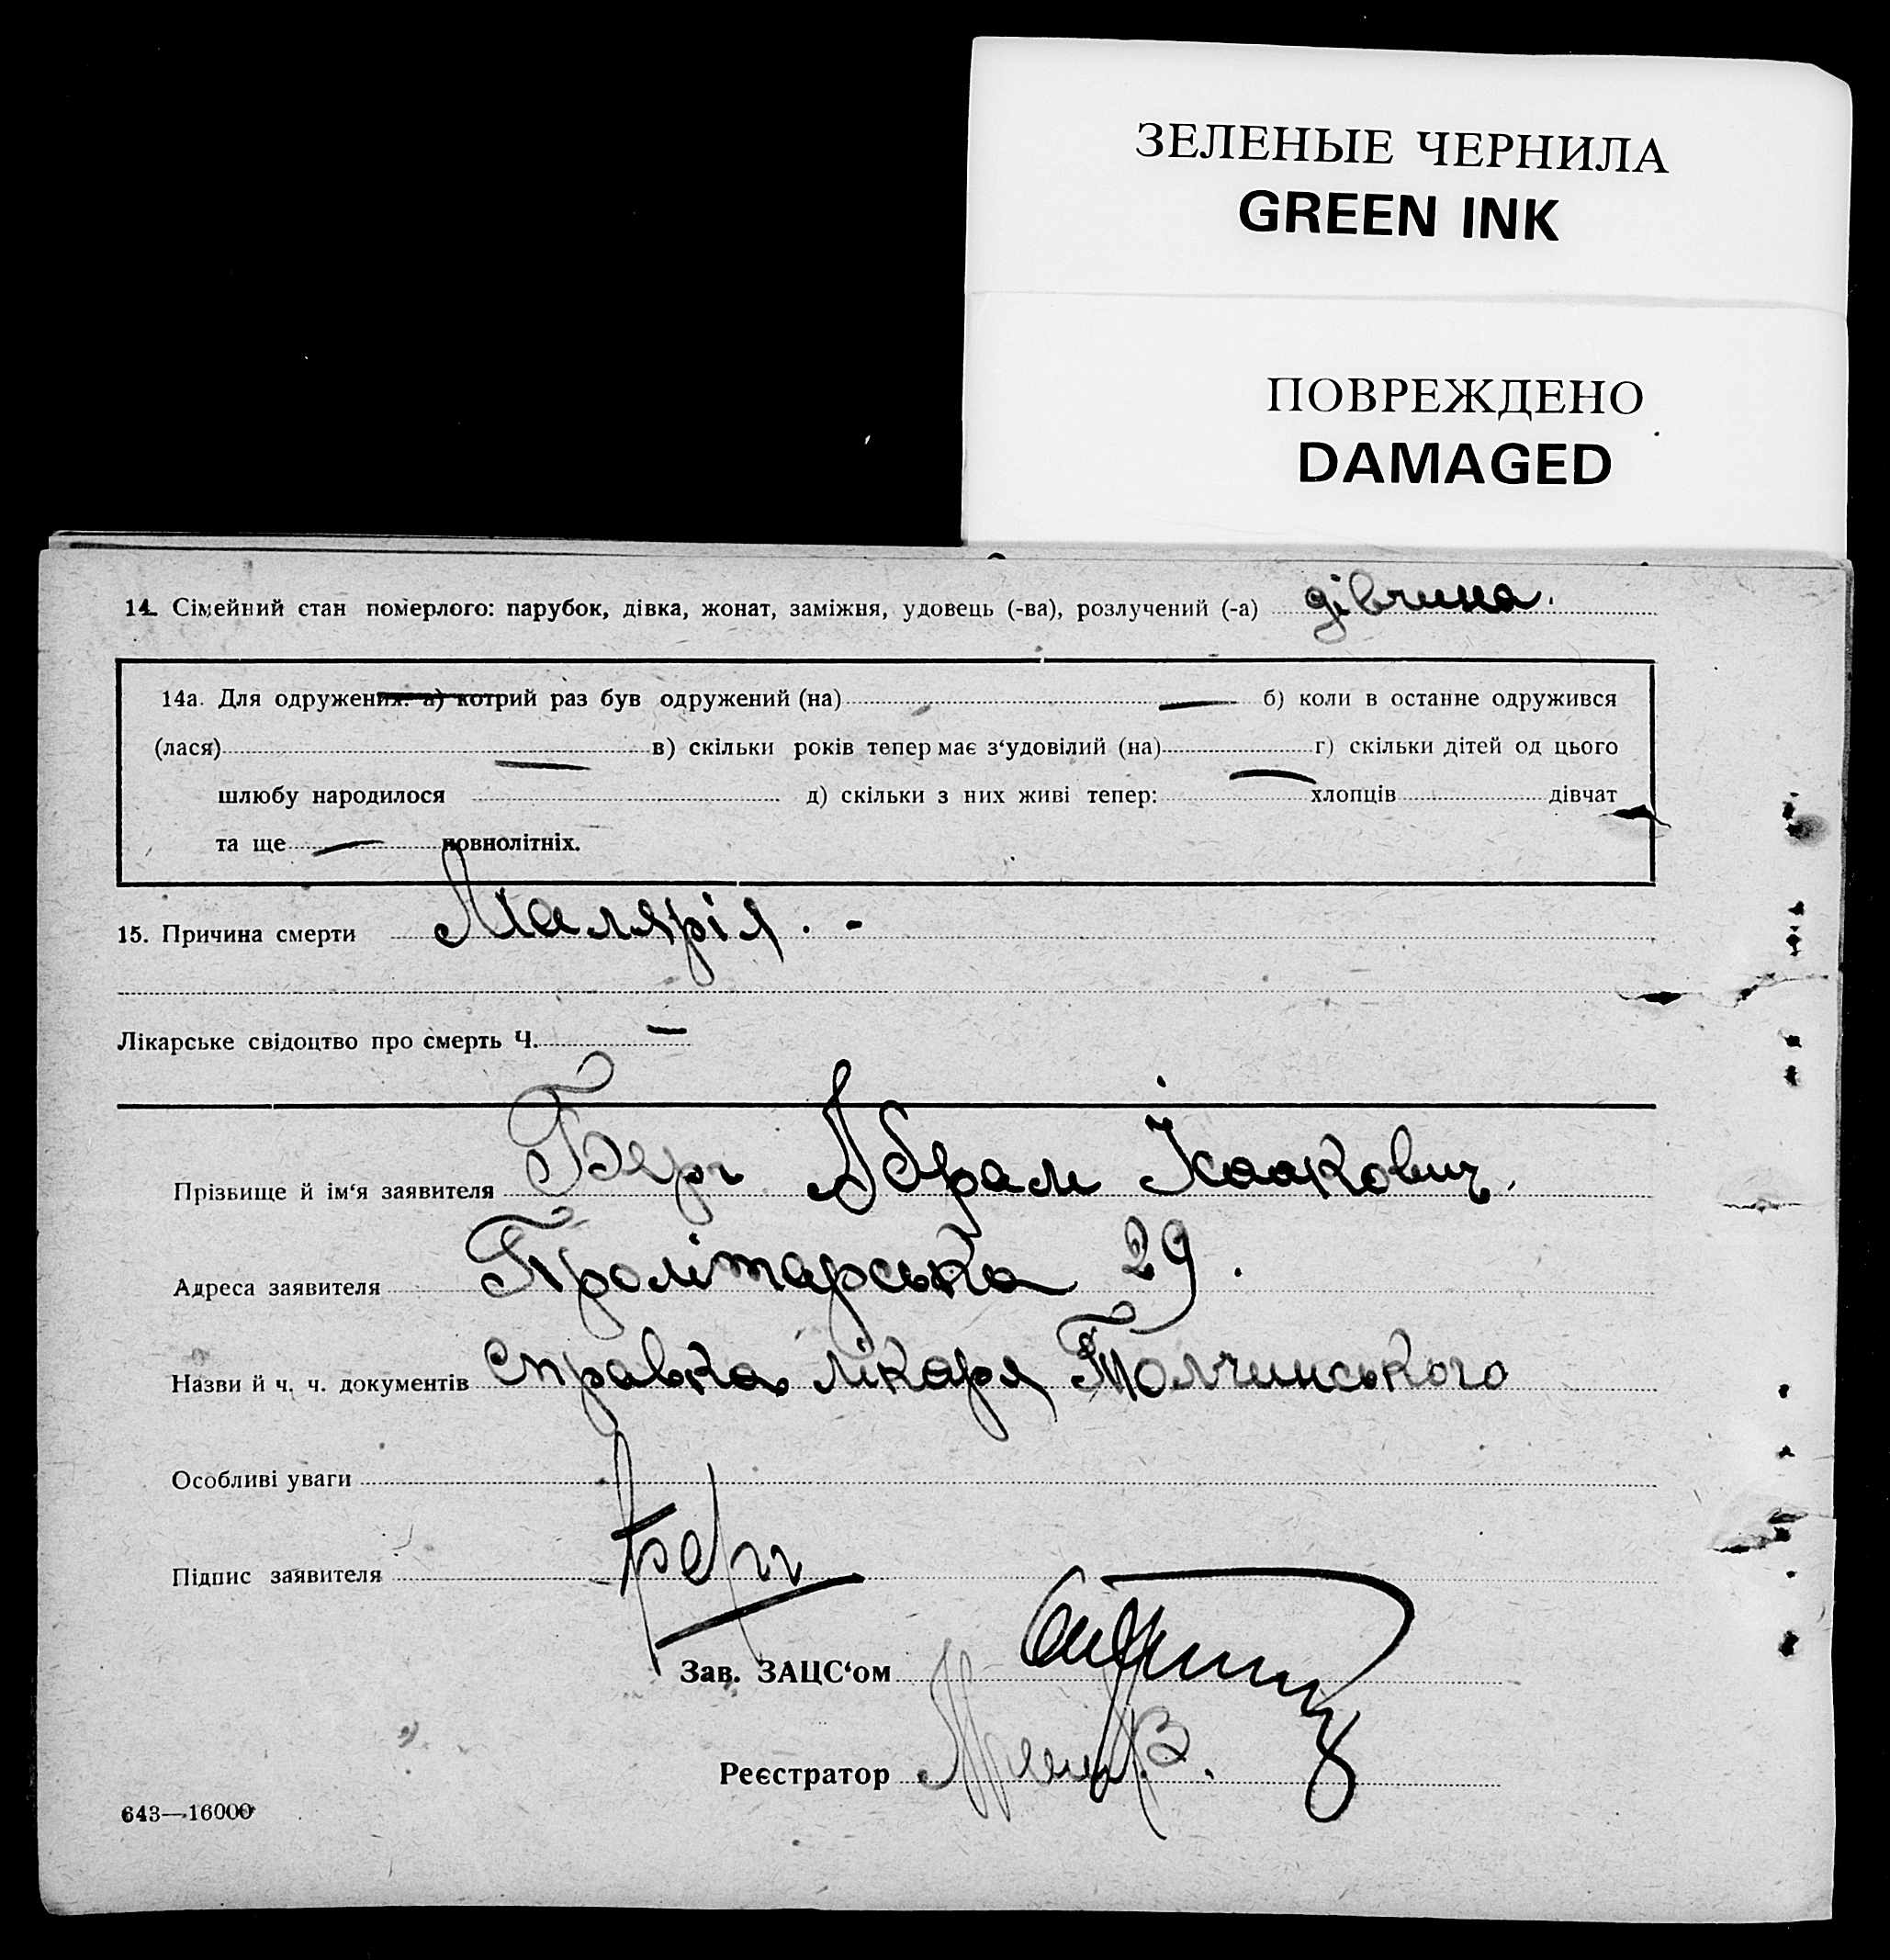 ЗЕЛЕНЫЕ ЧЕРНИЛА
GREEN INK
ПОВРЕЖДЕНО
DAMAGED
14. Сімейний стан померлого: парубок, дівка, жонат, заміжня, удовець (-ва), розлучений (-а) дівчина.
14а. Для одружених: а) котрий раз був одружений (на) — б) коли в останне одружився
(лася) — в) скільки років тепер має з‘удовілий (на) г) скільки дітей од цього
шлюбу народилося д) скільки з них живі тепер: — хлопців дівчат —
та ще — повнолітніх.
15. Причина смерти Малярія. -
Лікарське свідоцтво про смерть Ч. —
Прізвище й ім‘я заявителя Берг Абрам Ісаакович.
Адреса заявителя Пролітарська 29.
Назви й ч. ч. документів Справка лікаря Толчинського
Особливі уваги
Підпис заявителя Берг
Зав. ЗАЦС‘ом
Реєстратор
643—16000